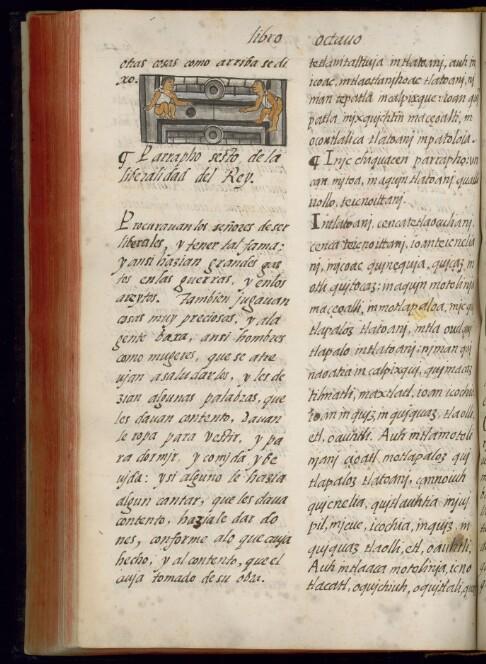 libro octauo
otras cosas como arriba se di
xo.
¶ Parrapho sesto, de la
liberalidad del Rey.
Procurauan los señores de ser
liberales, y tener tal fama:
y ansi hazian grandes gas
tos en las guerras, y en los
areytos. Tambien jugauan
cosas muy preciosas, y a la
gente baxa, ansi hombres
como mugeres, que se atre
uian a saludarlos, y les de
zian algunas palabras, que
les dauan contento, dauan
le ropa para vestir, y pa
ra dormir, y comida y be
uida: y si alguno le hazia
algun cantar, que les daua
contento, haziale dar do
nes, conforme a lo que auja
hecho, y al contento, que el
auja tomado de su obra.
tetlamtaltiuja in tlatoanj, auh
icoac, tlatoanj,
man tepatla in calpixque: ioan
patla, mjxquichtin maceoalti,
tlatoanj
¶ Injc chiquacen parrapho: vn
can mjtoa, in aqujn tlatoanj
iiollo, teicnoittanj.
In tlatoanj, cenca tetlaocolianj,
cenca teicnoittanj, ioan
nj, injcoac qujnequja,
oth qujtocaz: in aqujn motolinja
maceoalli, in motlapaloa,
tlapaloz tlatoanj, intla
tlapalo in tlatoanj: njman
naoatia in calpixqui, qujmacaz
tilmatli, maxtlatl, ioan icochia
ioan in quiz, in qujquaz, tlaolli,
etl, oauhtli. Auh intla motoli
njanj cioatl, motlapaloz
tlapaloz tlatoanj, çannoiuh
qujcnelia, qujtlauhtia
pil, mjcue, icochia, in quiz, in
qujquaz tlaolli, etl, oauhtli.
Auh intla aca motolinja, icno
tlacatl, oqujchiuh, oqujtlali,